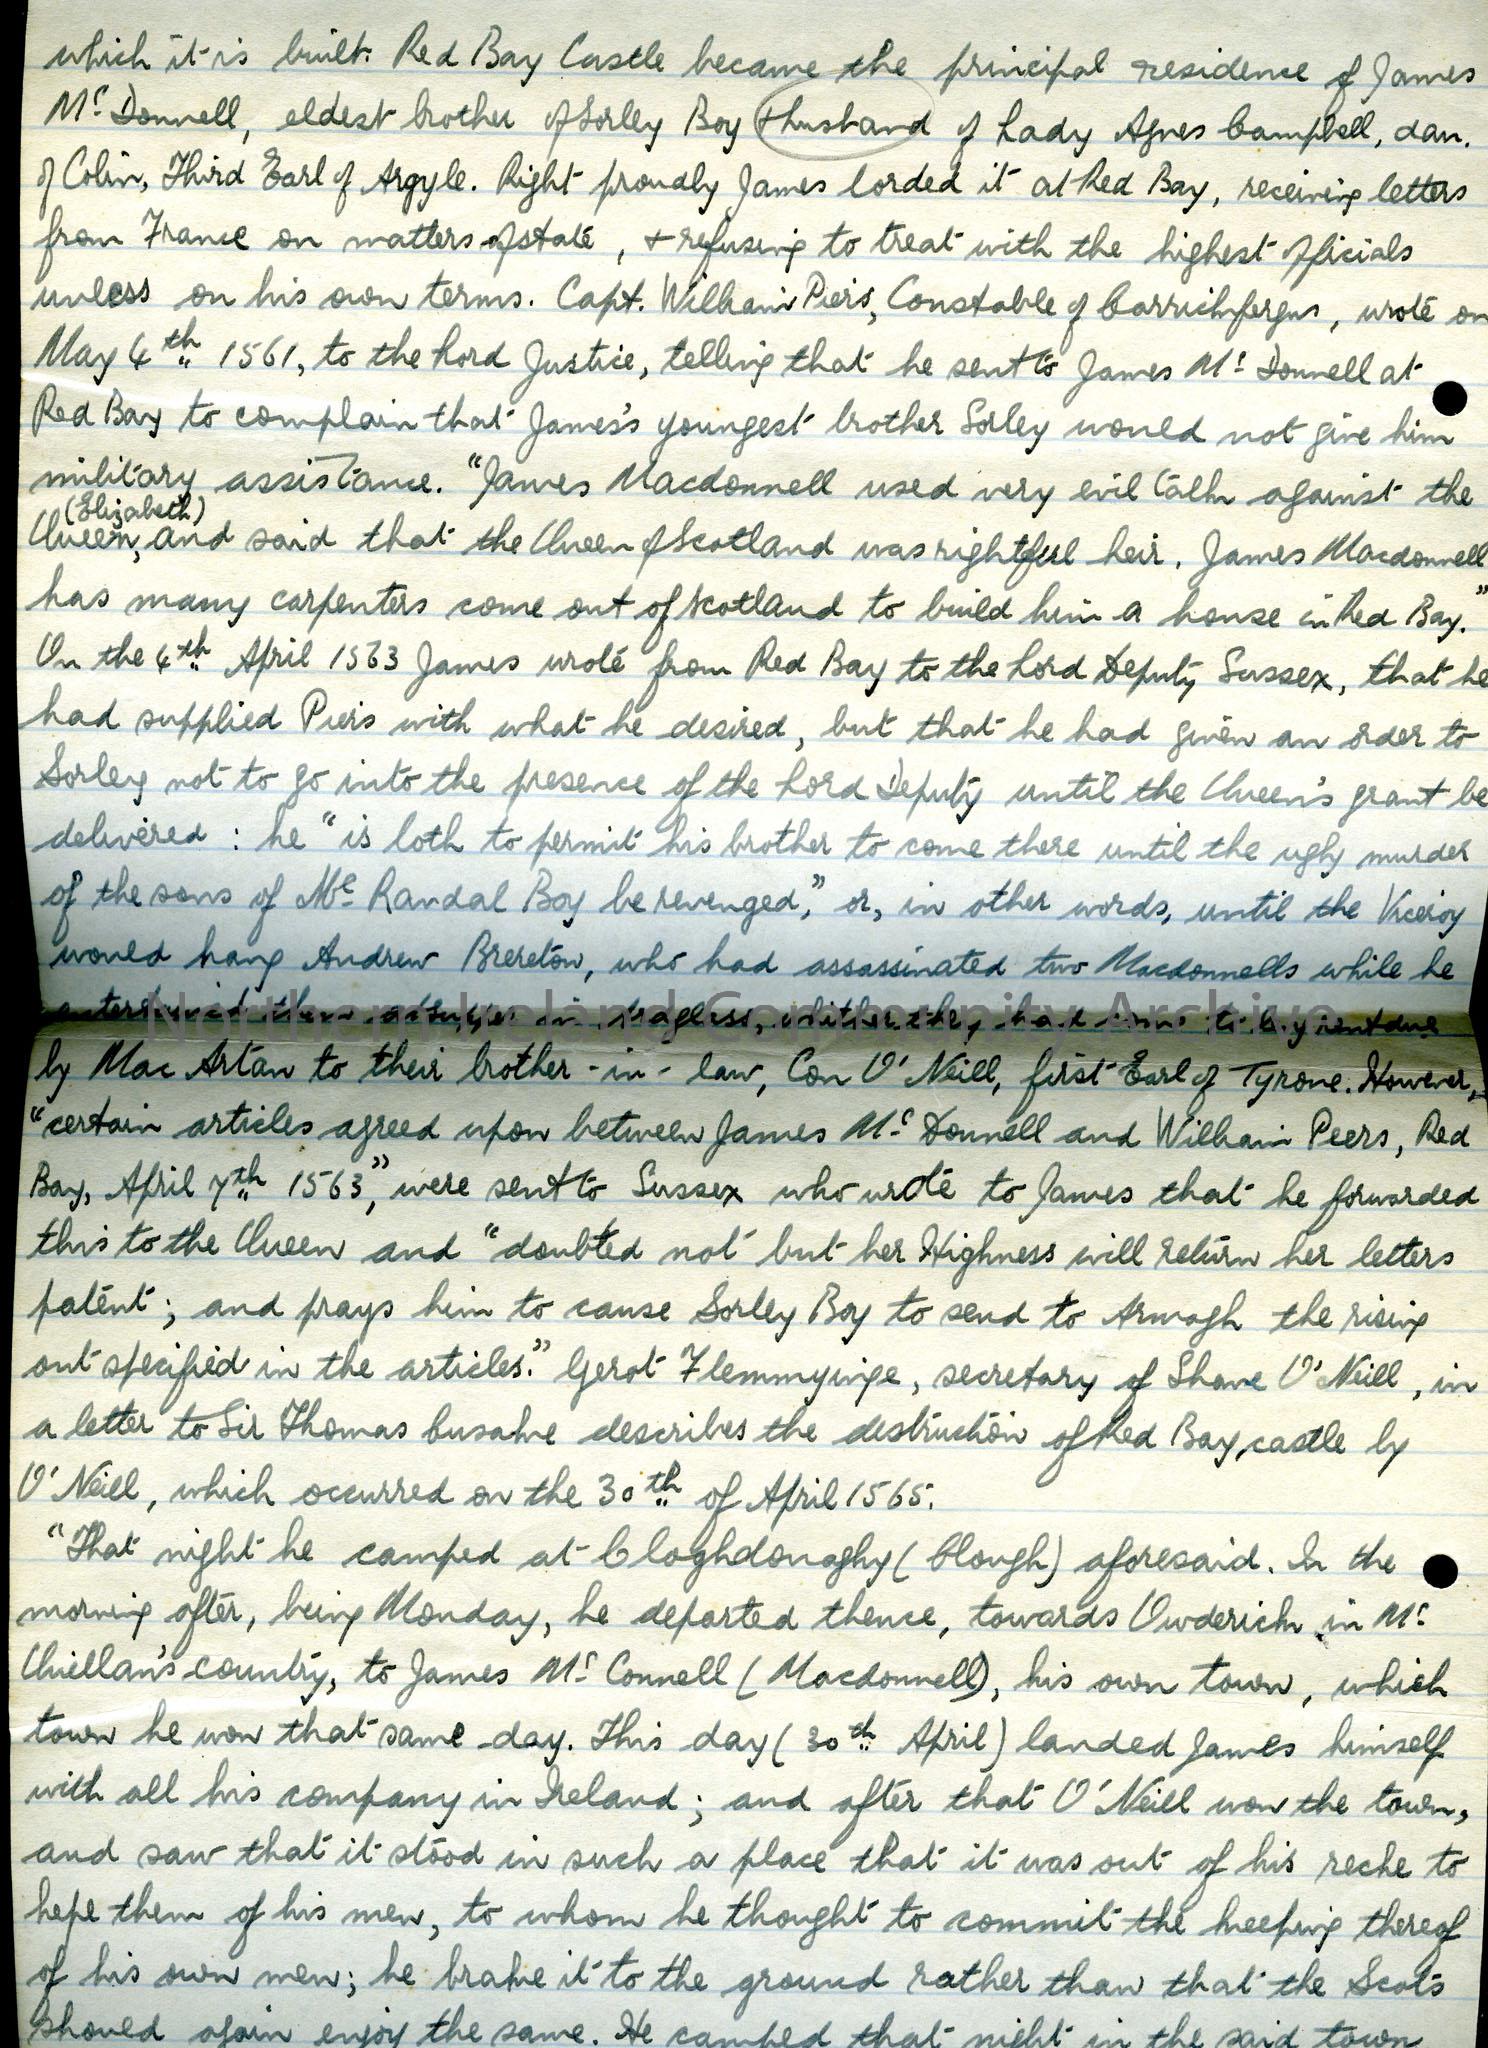 which it is built. Red Bay Castle became the principal residence of James
Mc Donnell, eldest brother of Sorley Boy & husband of Lady Agnes Campbell, dau.
of Colin, Third Earl of Argyle. Right proudly James lorded it at Red Bay, receiving letters
from France on matters of state, & refusing to treat with the highest officials
unless on his own terms. Capt. William Piers, Constable of Carrickfergus, wrote on
May 4th 1561, to the Lord Justice, telling that he sent to James Mc Donnell at
Red Bay to complain that James's youngest brother Sorley would not give him
military assistance. "James Macdonnell used very evil talk against the
(Elizabeth)
Queen, and said that the Queen of Scotland was rightful heir. James Macdonnell
has many carpenters come out of Scotland to build him a house in Red Bay."
On the 4th April 1563 James wrote from Red Bay to the Lord Deputy Sussex, that he
had supplied Piers with what he desired, but that he had given an order to
Sorley not to go into the presence of the Lord Deputy until the Queen's grant be
delivered : he "is loth to permit his brother to come there until the ugly murder
of the sons of Mc Randal Boy be revenged," or, in other words, until the Viceroy
would hang Andrew Brereton, who had assassinated two Macdonnells while he
entertained them at supper in, whither they had come to
by Mac Artan to their brother-in-law, Con O'Neill, first Earl of Tyrone. However,
"certain articles agreed upon between James Mc Donnell and William Peers, Red
Bay, April 7th 1563", were sent to Sussex who wrote to James that he forwarded
this to the Queen and "doubted not but her Highness will return her letters
patent; and prays him to cause Sorley Boy to send to Armagh the rising
out specified in the articles." Gerot Flemmyinge, secretary of Shane O'Neill, in
a letter to Sir Thomas Cusake describes the destruction of Red Bay castle by
O'Neill, which occurred on the 30th of April 1565.
"That night he camped at Cloghdonaghy (Clough) aforesaid. In the
morning after, being Monday, he departed thence, towards Uwderich in Mc
Quillan's country, to James Mc Connell (Macdonnell), his own town, which
town he won that same day. This day (30th April) landed James himself
with all his company in Ireland; and after that O'Neill won the town,
and saw that it stood in such a place that it was out of his reche to
hepe them of his men, to whom he thought to commit the keeping thereof
of his own men; he brake it to the ground rather than that the Scots
should again enjoy the same. He camped that night in the said town
Northern Ireland Community Archive